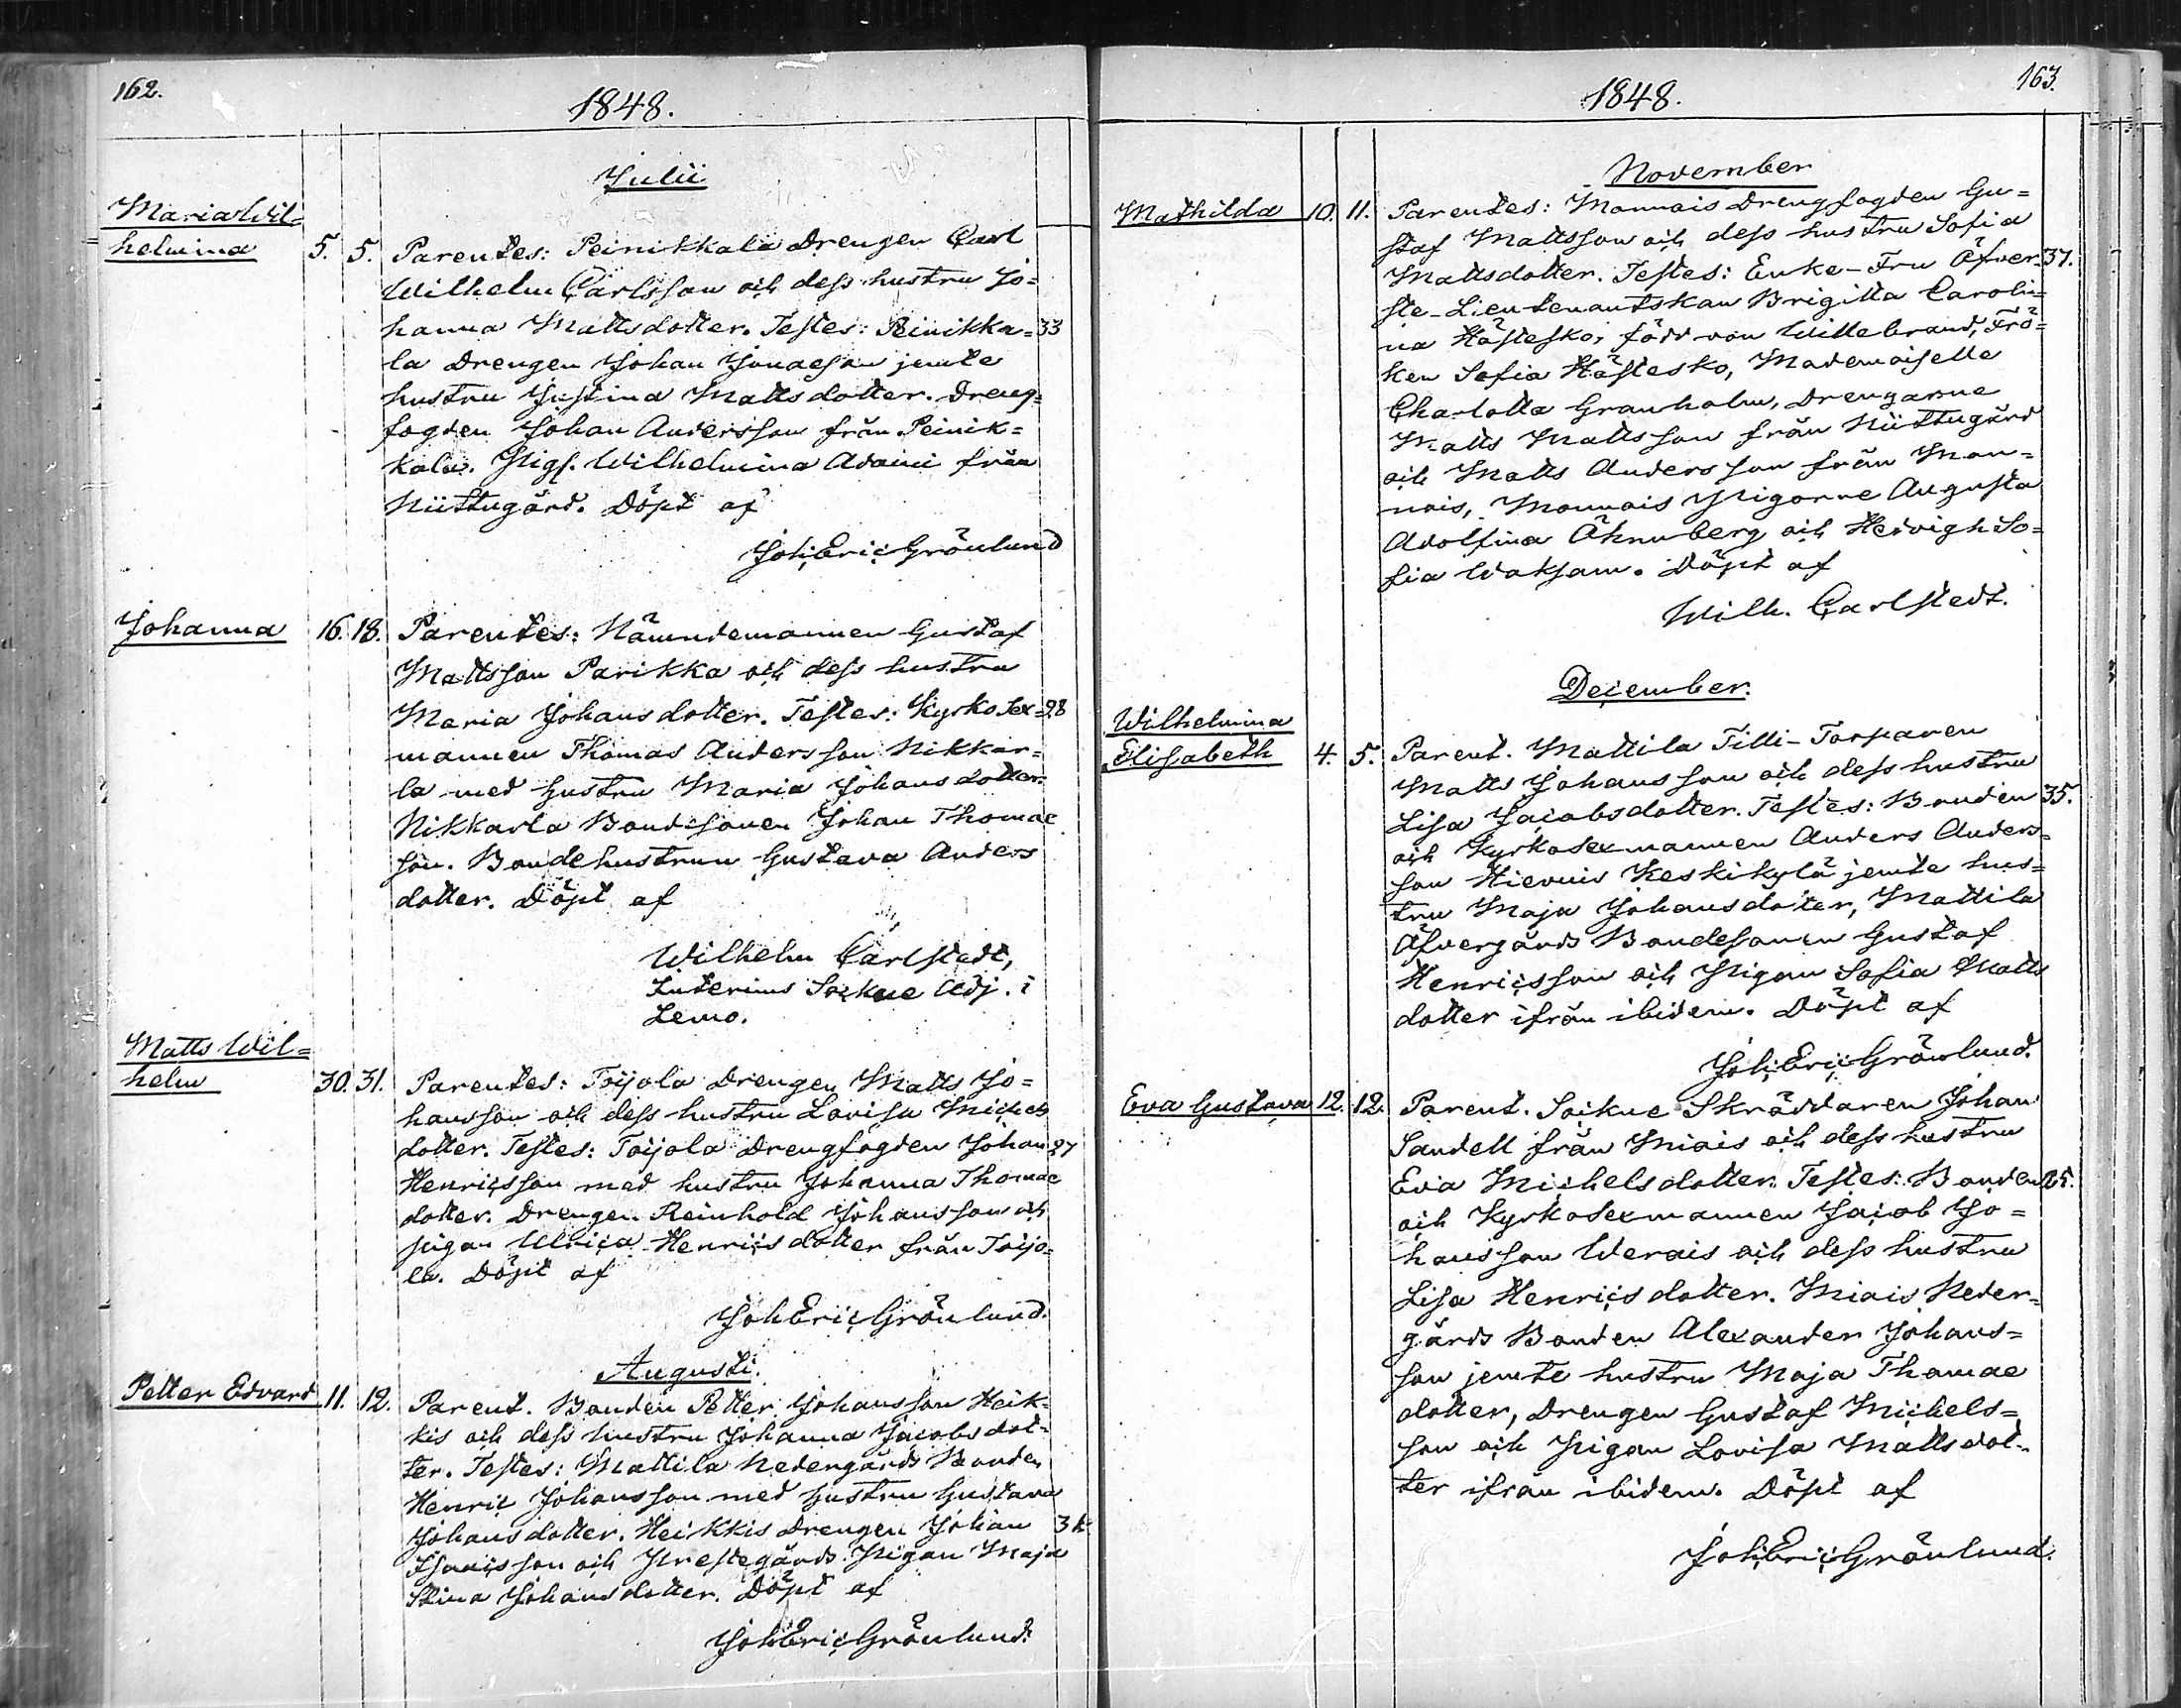 162.
1848.
Julii
Maria Wil=
helmina 5. 5. Parentes: Peinikkala Drengen Carl
Wilhelm Carlsson och dess hustru Jo=
hanna Mattsdotter. Testes: Peinikka= 33
la Drengen Johan Jonaeson jemte
hustru Justina Mattsdotter. Dreng=
fogden Johan Andersson från Peinik=
kala. Pig. Wilhelmina Adami från
Niittugård. Döpt af
Joh. Eric Grönlund
Johanna 16. 18. Parentes: Nämndemannen Gustaf
Mattsson Parikka och dess hustru
Maria Johansdotter. Testes: Kyrkosex= 28
mannen Thomas Andersson Nikkar=
la med hustru Maria Johansdotter.
Nikkarla Bondesonen Johan Thomae
son. Bondehustrun Gustava Anders
dotter. Döpt af
Wilhelm Carlstedt,
Interims Sockne Adj. i
Lemo.
Matts Wil=
helm 30. 31. Parentes: Toijola Drengen Matts Jo=
hansson och dess hustru Lovisa Michels
dotter. Testes: Toijola Drengfogden Johan 27
Henricsson med hustru Johanna Thomae
dotter. Drengen Reinhold Johansson och
pigan Ulrica Henricsdotter från Toijo=
la. Döpt af
Joh Eric Grönlund.
Augusti.
Petter Edvard 11. 12. Parent. Bonden Petter Johansson Heik=
kis och dess hustru Johanna Jacobsdot=
ter. Testes: Mattila Nedergårds Bonden
Henric Johansson med hustru Gustava
Johansdotter. Heikkis Drengen Johan
Isaacsson och Prestegårds Pigan Maja
Stina Johansdotter. Döpt af
Joh Eric Grönlund.
163.
1848.
November
Mathilda 10. 11. Parentes: Monnois Drengfogden Gu=
staf Mattsson och dess hustru Sofia
Mattsdotter. Testes: Enke-Fru Öfver= 37.
ste-Lieutenantskan Brigitta Caroli=
na Hästesko, född von Willebrand, Frö=
ken Sofia Hästesko, Mademoiselle
Charlotta Granholm, Drengarne
Matts Mattsson från Niittugård
och Matts Andersson från Mon=
nois, Monnois Pigorne Augusta
Adolfina Öhrnberg och Hedvigh So=
fia Waksam. Döpt af
Wilh. Carlstedt.
December.
Wilhelmina
Elisabeth 4. 5. Parent. Mattila Tilli-Torparen
Matts Johansson och dess hustru
Lisa Jacobsdotter. Testes: Bonden 35.
och Kyrkosexmannen Anders Anders=
son Hiervis Keskikylä jemte hus=
tru Maja Johansdotter, Mattila
Öfvergårds Bondesonen Gustaf
Henricsson och Pigan Sofia Matts
dotter ifrån ibidem. Döpt af
Joh. Eric Grönlund.
Eva Gustava 12. 12. Parent. Sockne Skräddaren Johan
Sandell från Miais och dess hustru
Eva Michelsdotter. Testes: Bonden 25.
och Kyrkosexmannen Jacob Jo=
hansson Werais och dess hustru
Lisa Henricsdotter. Miais Neder=
gårds Bonden Alexander Johans=
son jemte hustru Maja Thomae
dotter, Drengen Gustaf Michels=
son och Pigan Lovisa Mattsdot=
ter ifrån ibidem. Döpt af
Joh. Eric Grönlund.